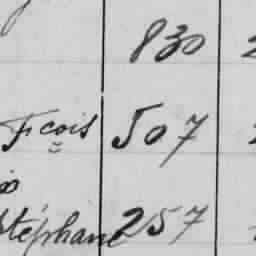 830
Fcois 507
Stéphane 257